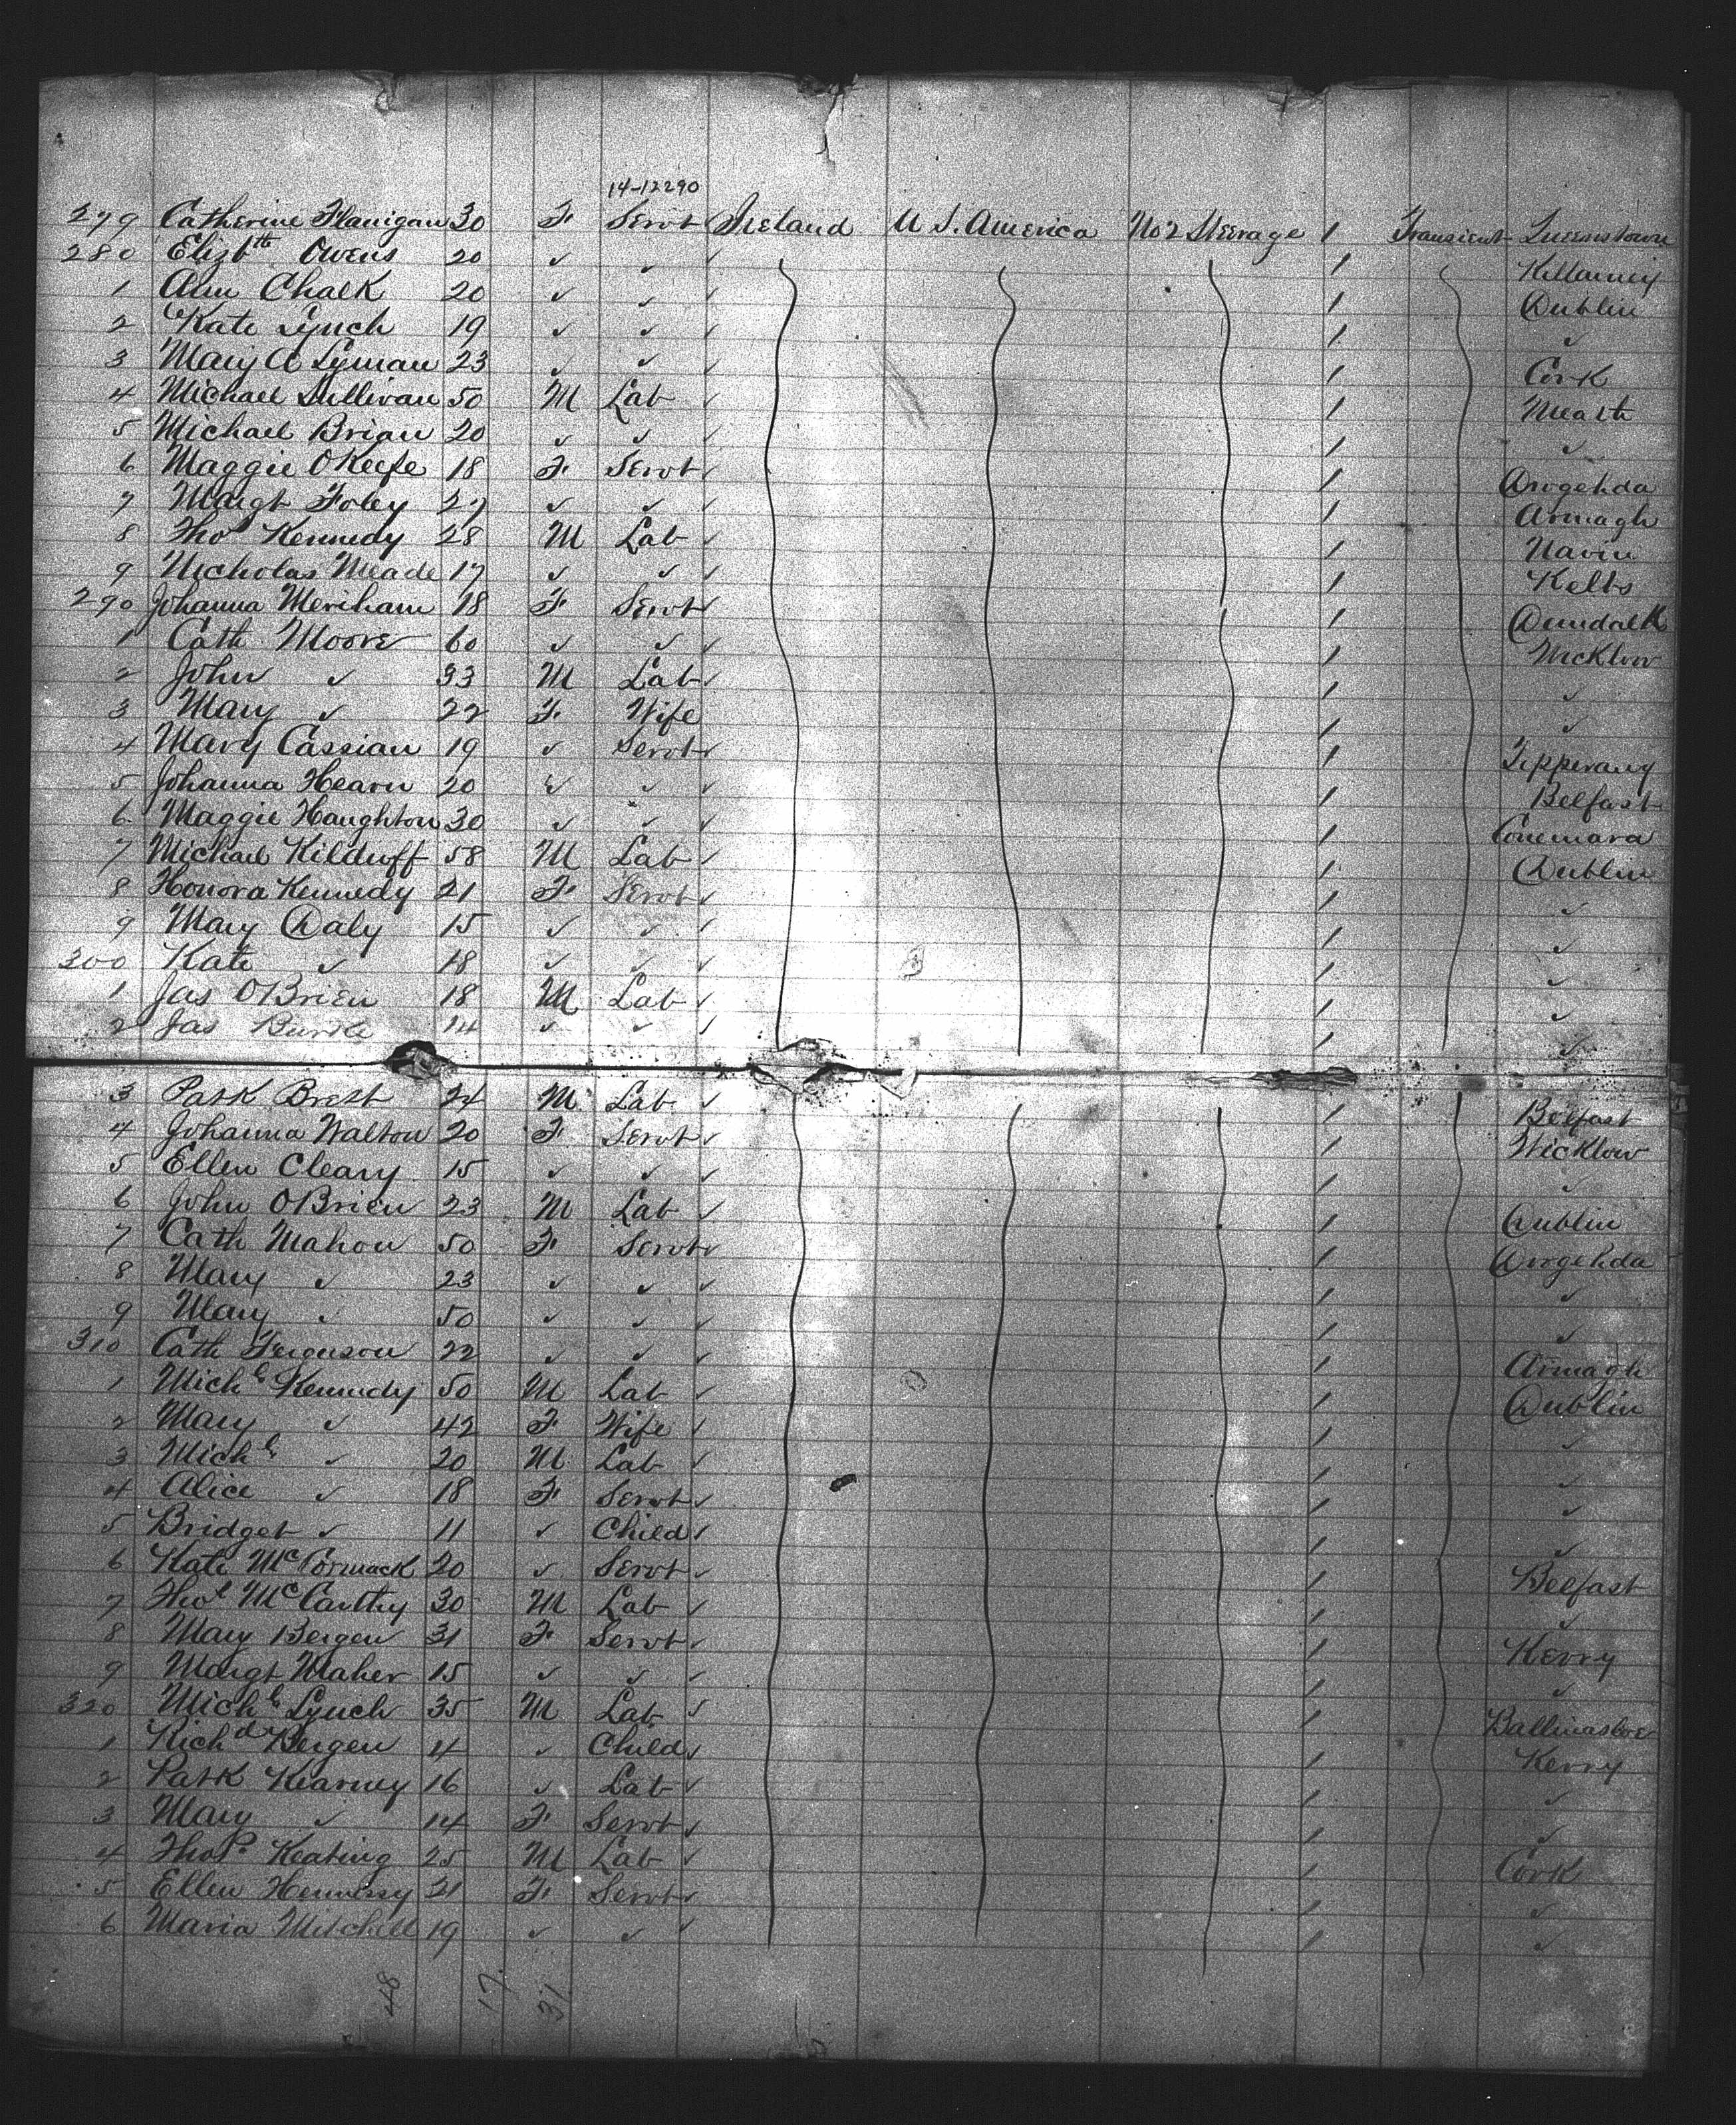 14-12290
279 Catherine Flanigan 30 F Servt Ireland U S. America No 2 Steerage 1 Transient Queenstown
280 Elizbth Owens 20 ✓ ✓ ✓ / Killarney
1 Ann Chalk 20 ✓ ✓ ✓ / Dublin
2 Kate Lynch 19 ✓ ✓ ✓ / ✓
3 Mary A Lyman 23 ✓ ✓ ✓ / Cork
4 Michael Sullivan 50 M Lab ✓ / Meath
5 Michael Brian 20 ✓ ✓ ✓ / ✓
6 Maggie OKeefe 18 F Servt ✓ / Drogehda
7 Margt Foley 27 ✓ ✓ ✓ / Armagh
8 Thos Kennedy 28 M Lab ✓ / Navin
9 Nicholas Meade 17 ✓ ✓ ✓ / Kells
290 Johanna Meriham 18 F Servt ✓ / Dundalk
1 Cath Moore 60 ✓ ✓ ✓ / Wicklow
2 John ✓ 33 M Lab ✓ / ✓
3 Mary ✓ 22 F Wife / ✓
4 Mary Cassian 19 ✓ Servt ✓ / Tipperary
5 Johanna Hearn 20 ✓ ✓ ✓ / Belfast
6 Maggie Haughton 30 ✓ ✓ ✓ / Conemara
7 Michael Kilduff 58 M Lab ✓ / Dublin
8 Honora Kennedy 21 F Servt ✓ / ✓
9 Mary Daly 15 ✓ ✓ ✓ / ✓
300 Kate ✓ 18 ✓ ✓ ✓ / ✓
1 Jas OBrien 18 M Lab ✓ / ✓
2 Jas Burke 14 ✓ ✓ ✓ / ✓
3 Patk Brett 24 M Lab ✓ / Belfast
4 Johanna Walton 20 F Servt ✓ / Wicklow
5 Ellen Cleary 15 ✓ ✓ ✓ / ✓
6 John OBrien 23 M Lab ✓ / Dublin
7 Cath Mahon 50 F Servt ✓ / Drogehda
8 Mary ✓ 23 ✓ ✓ ✓ / ✓
9 Mary ✓ 50 ✓ ✓ ✓ / ✓
310 Cath Ferguson 22 ✓ ✓ ✓ / Armagh
1 Michl Kennedy 50 M Lab ✓ / Dublin
2 Mary ✓ 42 F Wife ✓ / ✓
3 Michl ✓ 20 M Lab ✓ / ✓
4 Alice ✓ 18 F Servt ✓ / ✓
5 Bridget ✓ 11 ✓ Child ✓ / ✓
6 Kate McCormack 20 ✓ Servt ✓ / Belfast
7 Thos McCarthy 30 M Lab ✓ / ✓
8 Mary Bergen 31 F Servt ✓ / Kerry
9 Margt Maher 15 ✓ ✓ ✓ / ✓
320 Michl Lynch 35 M Lab ✓ / Ballinasloe
1 Richd Bergen 4 ✓ Child ✓ / Kerry
2 Patk Kearney 16 ✓ Lab ✓ / ✓
3 Mary ✓ 14 F Servt ✓ / ✓
4 Thos Keating 25 M Lab ✓ / Cork
5 Ellen Hennessy 21 F Servt ✓ / ✓
6 Maria Mitchell 19 ✓ ✓ ✓ / ✓
48 17 31